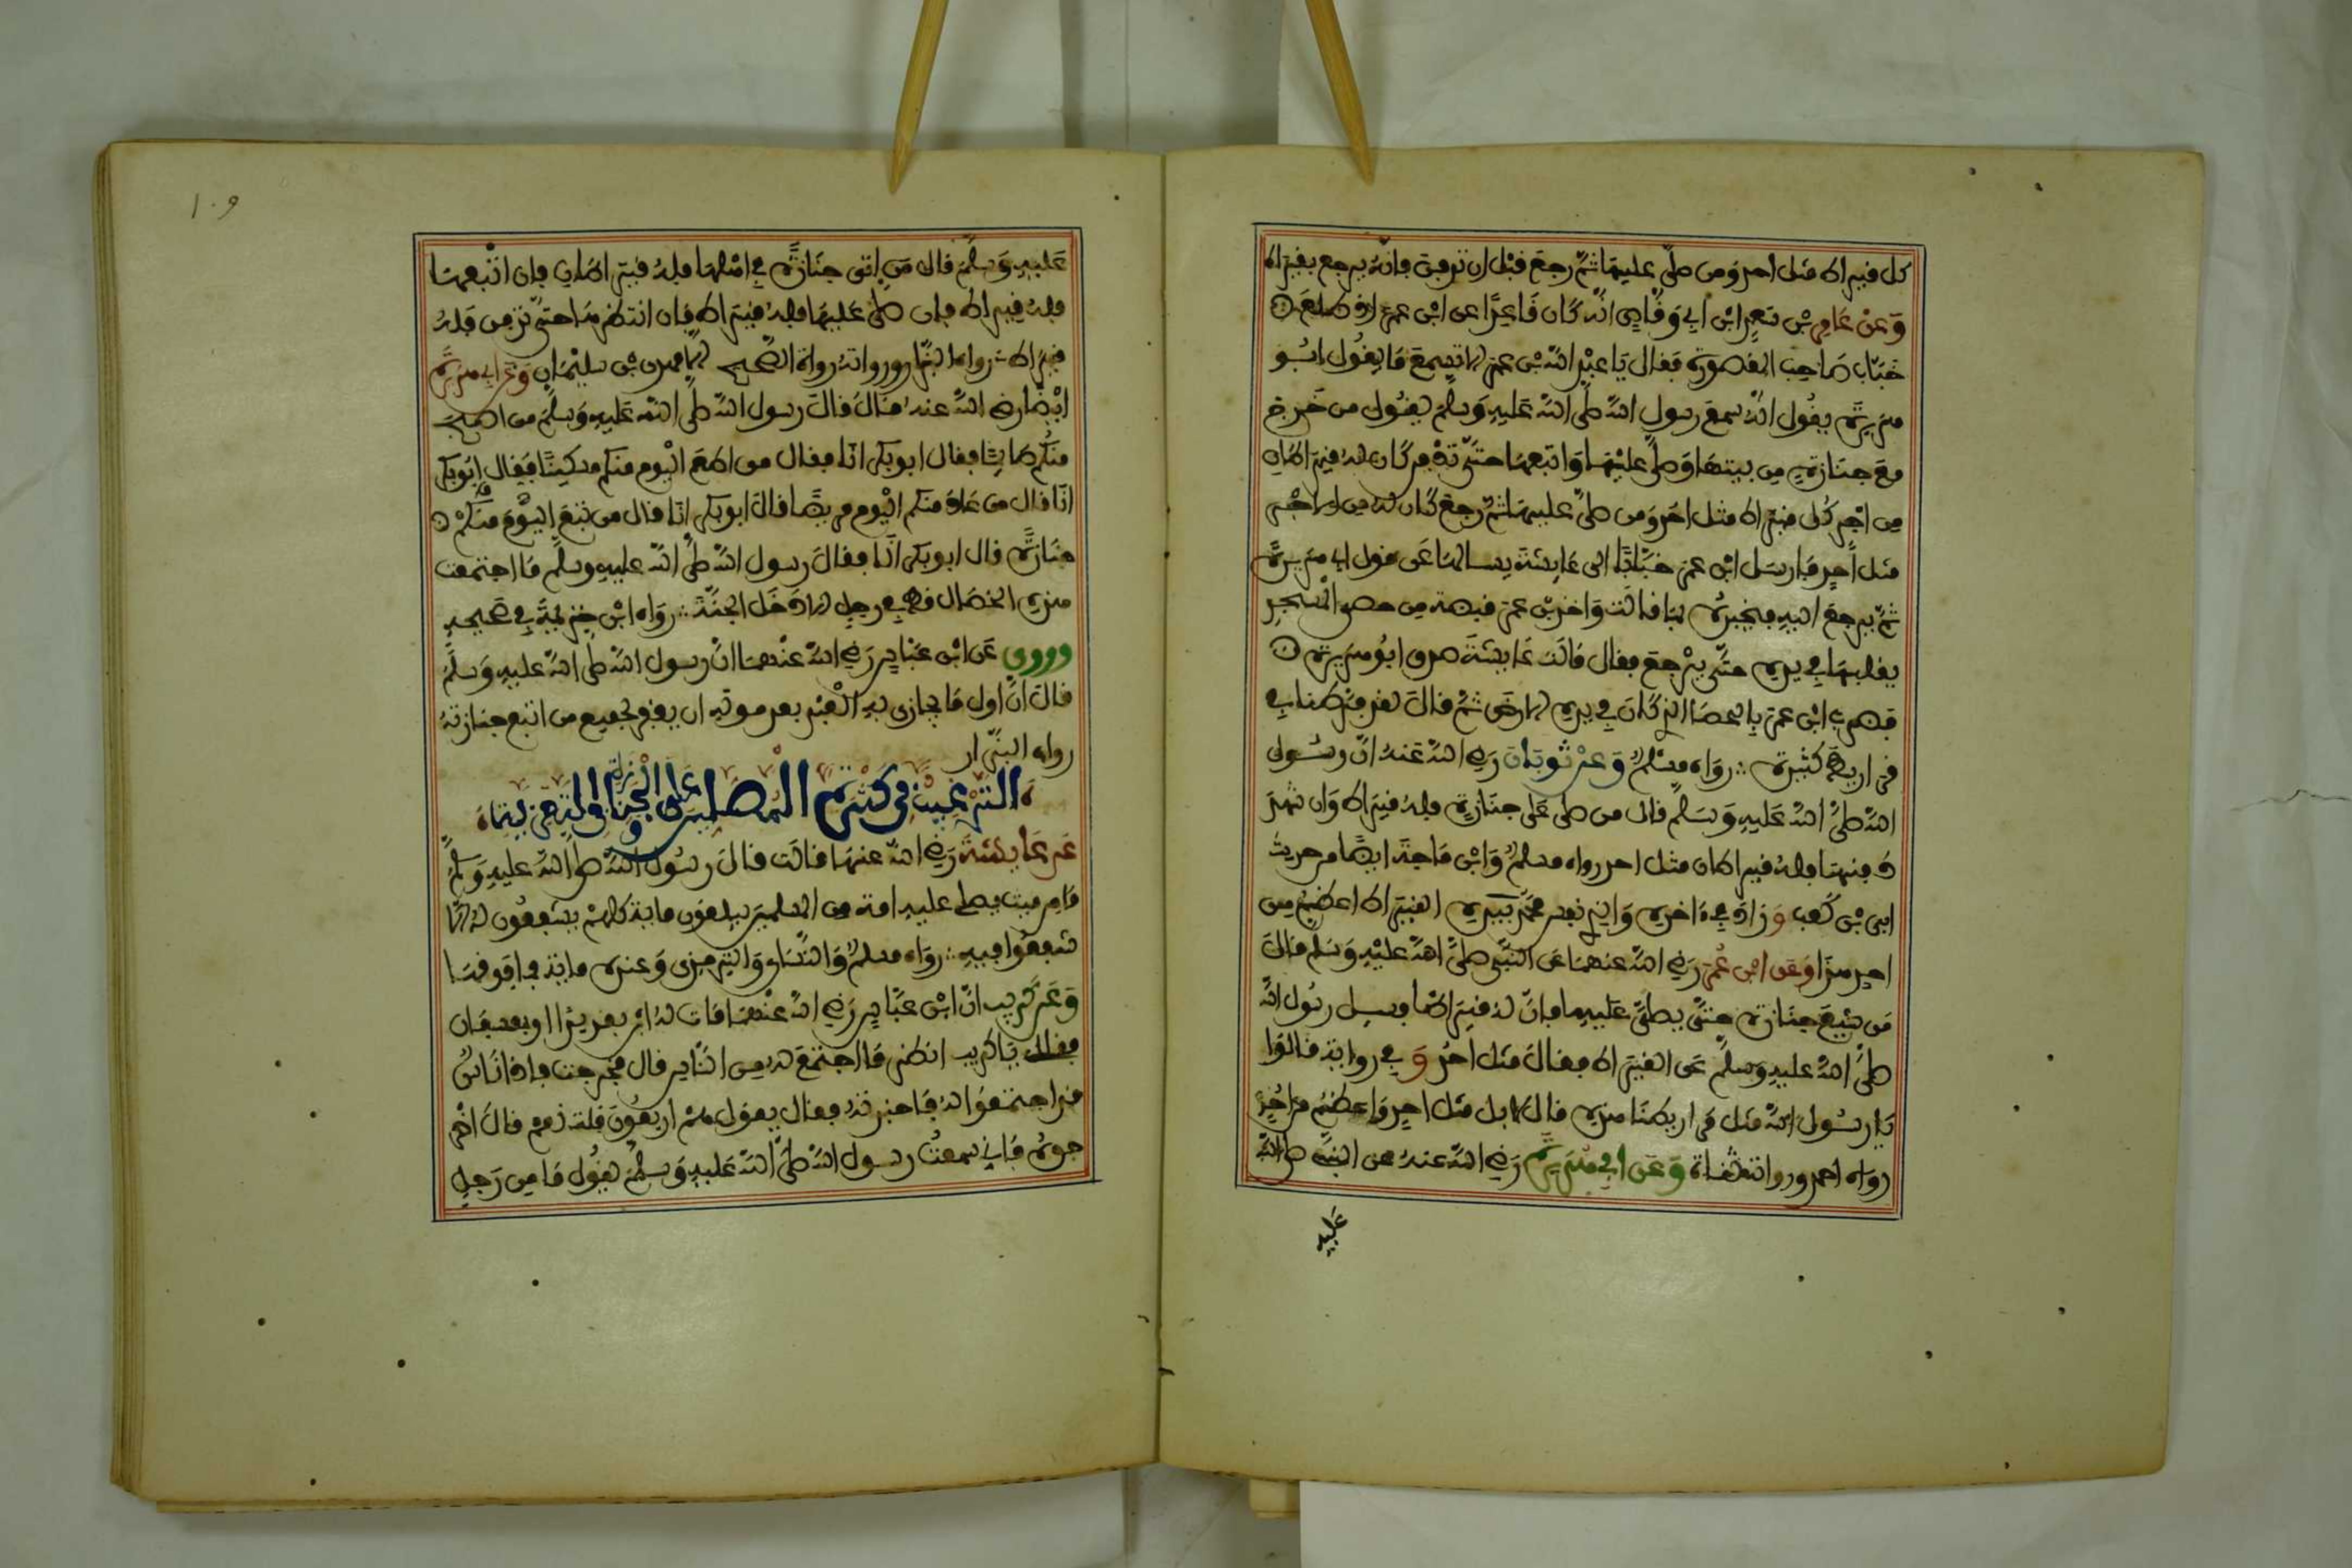 كل قيراط مثل احد ومن صلى عليها ثم رجع قبل ان تدفن فانه يرجع بقيراط
وعن عامر بن سعد ابن ابي وقاص انه كان قاعدا عن ابن عمر اذ طلع
خباب صاحب المقصورة فقال يا عبد الله بن عمر الا تسمع ما يقول ابو
هريرة يقول انه سمع رسول الله صلى الله عليه وسلم يقول من خرج
مع جنازة من بيتها وصلى عليها واتبعها حتى تدفن كان له قيراطان
من اجر كل قيراط مثل احد ومن صلى عليها ثم رجع كان له من الاجر
مثل احد فارسل ابن عمر خبابا الى عايشة يسالها عن قول ابي هريرة
ثم يرجع اليه فيخبره بما قالت واخذ بن عمر قبضة من حصى المسجد
يقلبها في يده حتى يرجع فقال قالت عايشة صدق ابو هريرة
فضرب ابن عمر بالحصا الذي كان في يده الارض ثم قال لقد فرطنا في
قراريط كثيرة رواه مسلم وعن ثوبان رضي الله عنه ان رسول
الله صلى الله عليه وسلم قال من صلى على جنازة فله قيراط وان شهد
دفنها فله قيراطان مثل احد رواه مسلم وابن ماجة ايضا من حديث
ابي بن كعب وزاد في اخره والذي نفس محمد بيده القيراط اعظم من
احد هذا وعن ابن عمر رضي الله عنهما عن النبي صلى الله عليه وسلم قال
من تبع جنازة حتى يصلى عليها فان له قيراطا فسيل رسول الله
صلى الله عليه وسلم عن القيراط فقال مثل احد و في رواية قالوا
يا رسول الله مثل قراريطنا هذه قال لا بل مثل احد واعظم من احد
رواه احمد ورواته ثقاة وعن ابي هريرة رضي الله عنه عن النبي صلى الله
عليه
١٠٩
عليه وسلم قال من اتى جنازة في اهلها فله قيراط فان اتبعها
فله قيراط فان صلى عليها فله قيراط فان انتظرها حتى تدفن فله
قيراط رواه البزار ورواته رواة الصحيح الا معدي بن سليمان وعن ابي هريرة
ايضا رضي الله عنه قال قال رسول الله صلى الله عليه وسلم من اصبح
منكم صايما فقال ابو بكر انا فقال من اطعم اليوم منكم مسكينا فقال ابو بكر
انا قال من عاد منكم اليوم مريضا فقال ابو بكر انا قال من تبع اليوم منكم
جنازة قال ابو بكر انا فقال رسول الله صلى الله عليه وسلم ما اجتمعت
هذه الخصال قط في رجل الا دخل الجنة رواه ابن خزيمة في صحيحه
وروي عن ابن عباس رضي الله عنهما ان رسول الله صلى الله عليه وسلم
قال ان اول ما يجازى به العبد بعد موته ان يغفر لجميع من اتبع جنازته
رواه البزار
الترغيب في كثرة المصلين على الجنازة وفي التعزية
عن عايشة رضي الله عنها قالت قال رسول الله صلى الله عليه وسلم
ما من ميت يصلي عليه امة من المسلمين يبلغون ماية كلهم يشفعون له الا
شفعوا فيه رواه مسلم والنساي والترمذي وعنده ماية فما فوقها
وعن كريب ان ابن عباس رضي الله عنهما مات له ابن بقديد او بعسفان
فقال يا كريب انظر ما اجتمع له من الناس قال فخرجت فاذا ناس
قد اجتمعوا له فاخبرته فقال يقول هم اربعون قلت نعم قال اخر
جوه فاني سمعت رسول الله صلى الله عليه وسلم يقول ما من رجل